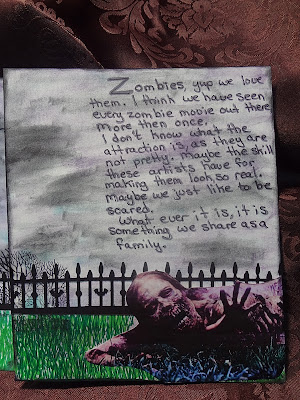 Zombies, yup we love
them. I think we have seen
every zombie movie out there
more then once.
I don't know what the
attraction is, as they are
not pretty. Maybe the skill
these artists have for
making them look so real.
Maybe we just like to be
scared.
What ever it is, it is
something we share as a
family.